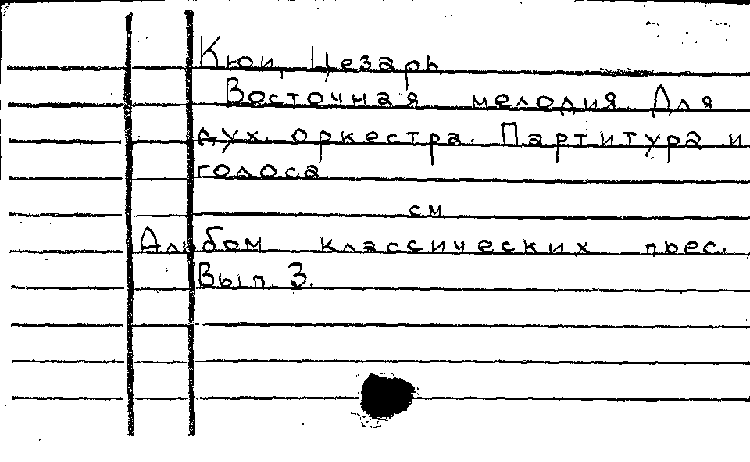 Кюи, Цезарь
Восточная мелодия. Для
дух. оркестра. Партитура и
голоса
см
Альбом классических пьес.
Вып. 3.